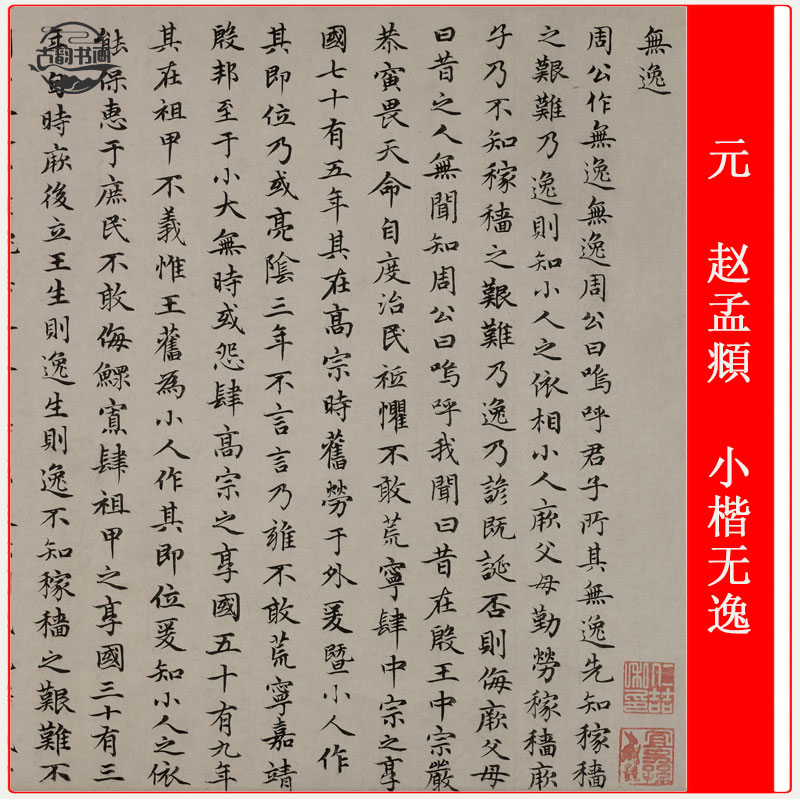 元 赵孟頫 小楷无逸
無逸
周公作無逸無逸周公曰嗚呼君子所其無逸先知稼穡
之艱難乃逸則知小人之依相小人厥父母勤勞稼穡厥
子乃不知稼穡之艱難乃逸乃諺既誕否則侮厥父母
曰昔之人無聞知周公曰嗚呼我聞曰昔在殷王中宗嚴
恭寅畏天命自度治民祗懼不敢荒寧肆中宗之享
國七十有五年其在高宗時舊勞于外爰暨小人作
其即位乃或亮陰三年不言言乃雍不敢荒寧嘉靖
殷邦至于小大無時或怨肆高宗之享國五十有九年
其在祖甲不義惟王舊為小人作其即位爰知小人之依
能保惠于庶民不敢侮鰥寡肆祖甲之享國三十有三
年自時厥後立王生則逸生則逸不知稼穡之艱難不
古韵书画